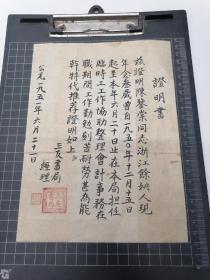 證明書
茲證明陳馨棠同志浙江餘姚人現
年念叁歲曾自一九五〇年十二月十五日
起至本年六月二十日止在本局担任
臨時三工作協助整理會計事務在
職期間工作勤勉刻苦耐勞甚為能
幹特代推荐證明如上
三友書局
經理
公元一九五一年六月二十一日